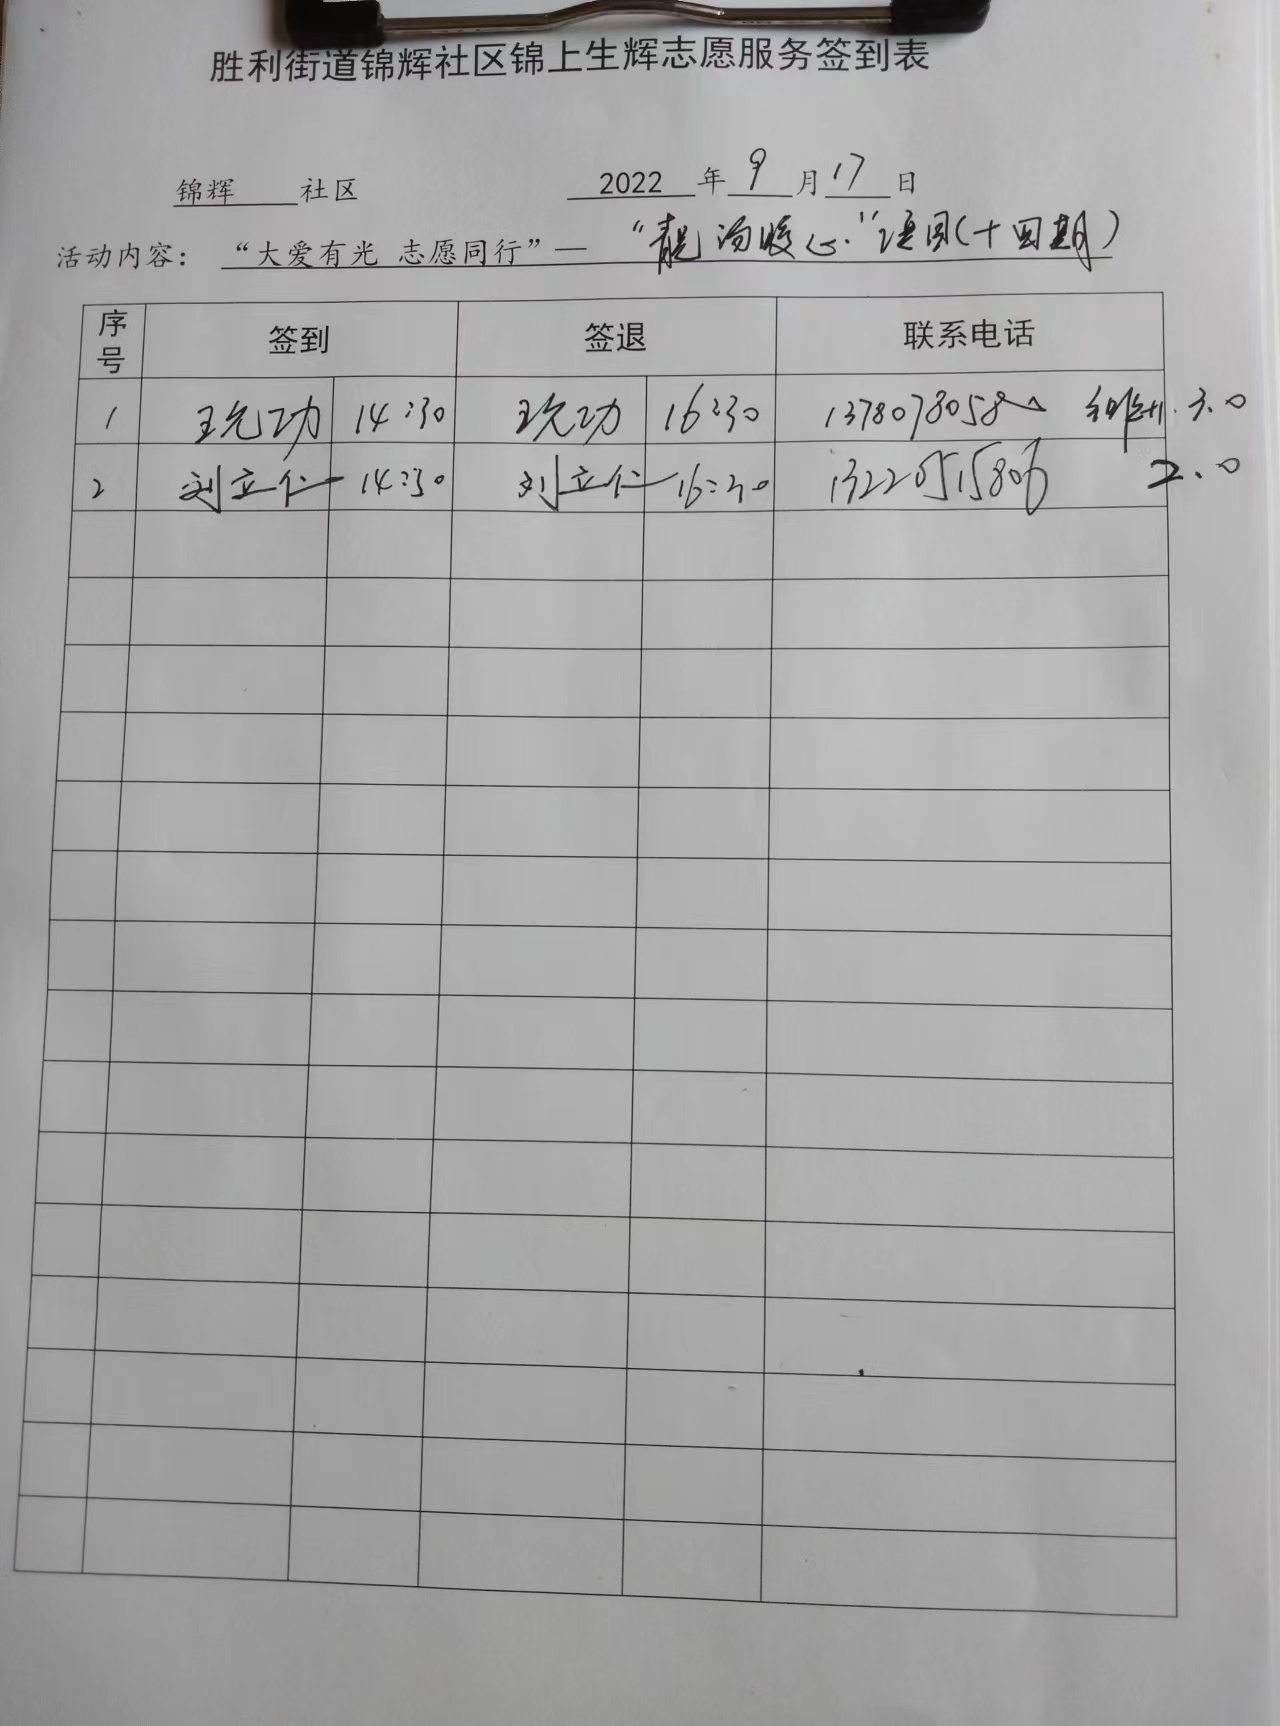 胜利街道锦辉社区锦上生辉志愿服务签到表
锦辉 社区 2022 年 9 月 17 日
活动内容：“大爱有光 志愿同行”— “靓汤暖心”(十四期)
序号 签到 签退 联系电话
1 14:30 16:30 3.0
2 刘立仁 14:30 刘立仁 16:30 13220515806 2.0